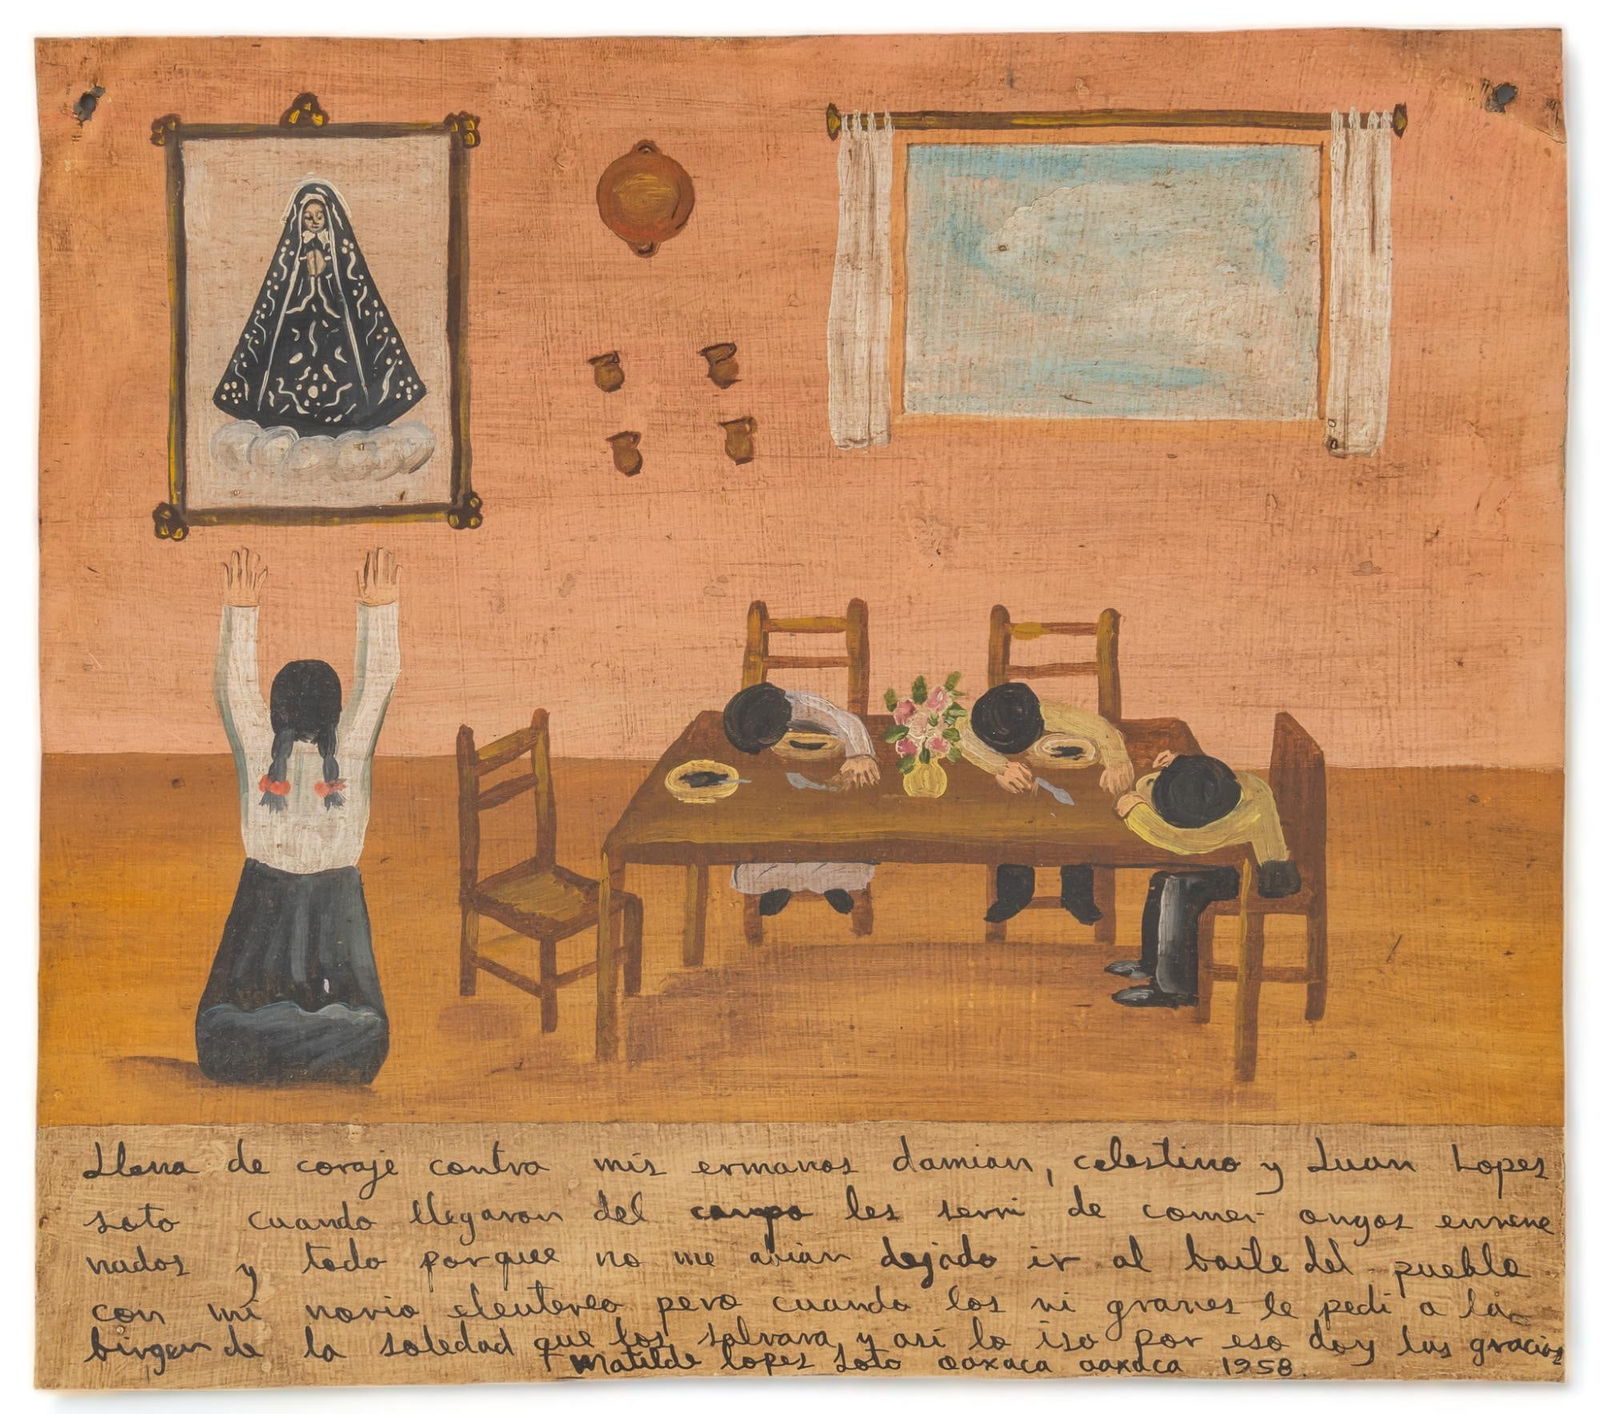 Llena de coraje contra mis ermanos damian, celestino y Luan Lopes
soto cuando llegaron del campo les servi de comer ongos envene
nados y todo porque no me abian dejado ir al baile del pueblo
con mi novio eleutereo pero cuando los vi graves le pedi a la
birgen de la soledad que los salvara y asi lo iso por eso doy las gracias
Matilde Lopes Soto oaxaca oaxaca 1958